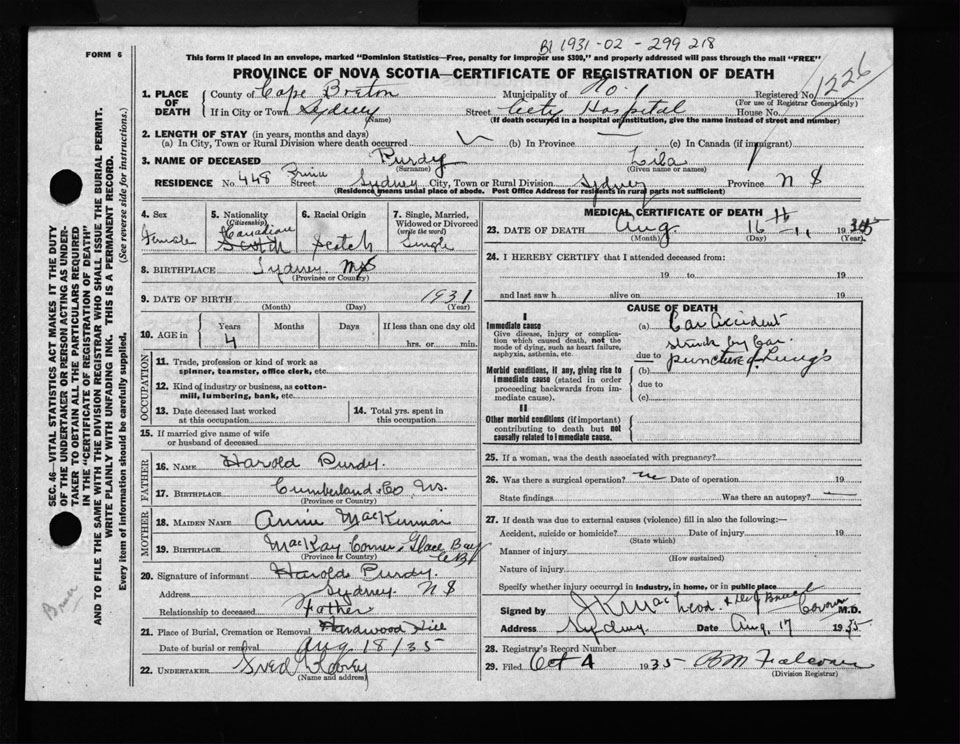 B1 1931-02-299218
FORM 6
This form if placed in an envelope, marked "Dominion Statistics—Free, penalty for improper use $300," and properly addressed will pass through the mail "FREE"
PROVINCE OF NOVA SCOTIA—CERTIFICATE OF REGISTRATION OF DEATH
1226
1. PLACE OF DEATH
County of Cape Breton Municipality of No. 1 Registered No. (For use of Registrar General only)
If in City or Town Sydney (Name) Street City Hospital House No.
(If death occurred in a hospital or institution, give the name instead of street and number)
2. LENGTH OF STAY (in years, months and days)
(a) In City, Town or Rural Division where death occurred (b) In Province (c) In Canada (if immigrant)
3. NAME OF DECEASED Purdy (Surname) Lila (Given name or names)
RESIDENCE No. 448 Prince Street Sydney City, Town or Rural Division Sydney Province N S
(Residence means usual place of abode. Post Office Address for residents in rural parts not sufficient)
4. Sex Female
5. Nationality (Citizenship) Canadian Scotch
6. Racial Origin Scotch
7. Single, Married, Widowed or Divorced (write the word) Single
8. BIRTHPLACE Sydney NS (Province or Country)
9. DATE OF BIRTH (Month) (Day) 1931 (Year)
10. AGE in Years 4 Months Days If less than one day old hrs. or min.
OCCUPATION
11. Trade, profession or kind of work as spinner, teamster, office clerk, etc.
12. Kind of industry or business, as cotton-mill, lumbering, bank, etc.
13. Date deceased last worked at this occupation
14. Total yrs. spent in this occupation
15. If married give name of wife or husband of deceased
FATHER
16. NAME Harold Purdy.
17. BIRTHPLACE Cumberland Co Ns. (Province or Country)
MOTHER
18. MAIDEN NAME Annie MacKinnon
19. BIRTHPLACE MacKay Corner, Glace Bay C B (Province or Country)
20. Signature of informant Harold Purdy.
Address Sydney N S
Relationship to deceased Father
21. Place of Burial, Cremation or Removal Hardwood Hill
Date of burial or removal Aug 18/35
22. UNDERTAKER (Name and address)
MEDICAL CERTIFICATE OF DEATH
23. DATE OF DEATH Aug. (Month) 16th (Day) 1935 (Year)
24. I HEREBY CERTIFY that I attended deceased from:
19 to 19
and last saw h alive on 19
CAUSE OF DEATH
I
Immediate cause
Give disease, injury or complication which caused death, not the mode of dying, such as heart failure, asphyxia, asthenia, etc.
(a) Car Accident
struck by Car
due to puncture of Lung's
Morbid conditions, if any, giving rise to immediate cause (stated in order proceeding backwards from immediate cause).
(b)
due to
(c)
II
Other morbid conditions (if important) contributing to death but not causally related to immediate cause.
25. If a woman, was the death associated with pregnancy?
26. Was there a surgical operation? no Date of operation 19
State findings Was there an autopsy?
27. If death was due to external causes (violence) fill in also the following:—
Accident, suicide or homicide? (State which) Date of injury 19
Manner of injury (How sustained)
Nature of injury
Specify whether injury occurred in industry, in home, or in public place
Signed by Coroner M.D.
Address Sydney. Date Aug 17 1935
28. Registrar's Record Number
29. Filed Oct 4 1935 (Division Registrar)
SEC. 46—VITAL STATISTICS ACT MAKES IT THE DUTY
OF THE UNDERTAKER OR PERSON ACTING AS UNDER-
TAKER TO OBTAIN ALL THE PARTICULARS REQUIRED
IN THE "CERTIFICATE OF REGISTRATION OF DEATH"
AND TO FILE THE SAME WITH THE DIVISION REGISTRAR WHO SHALL ISSUE THE BURIAL PERMIT.
WRITE PLAINLY WITH UNFADING INK. THIS IS A PERMANENT RECORD.
Every item of information should be carefully supplied. (See reverse side for instructions.)